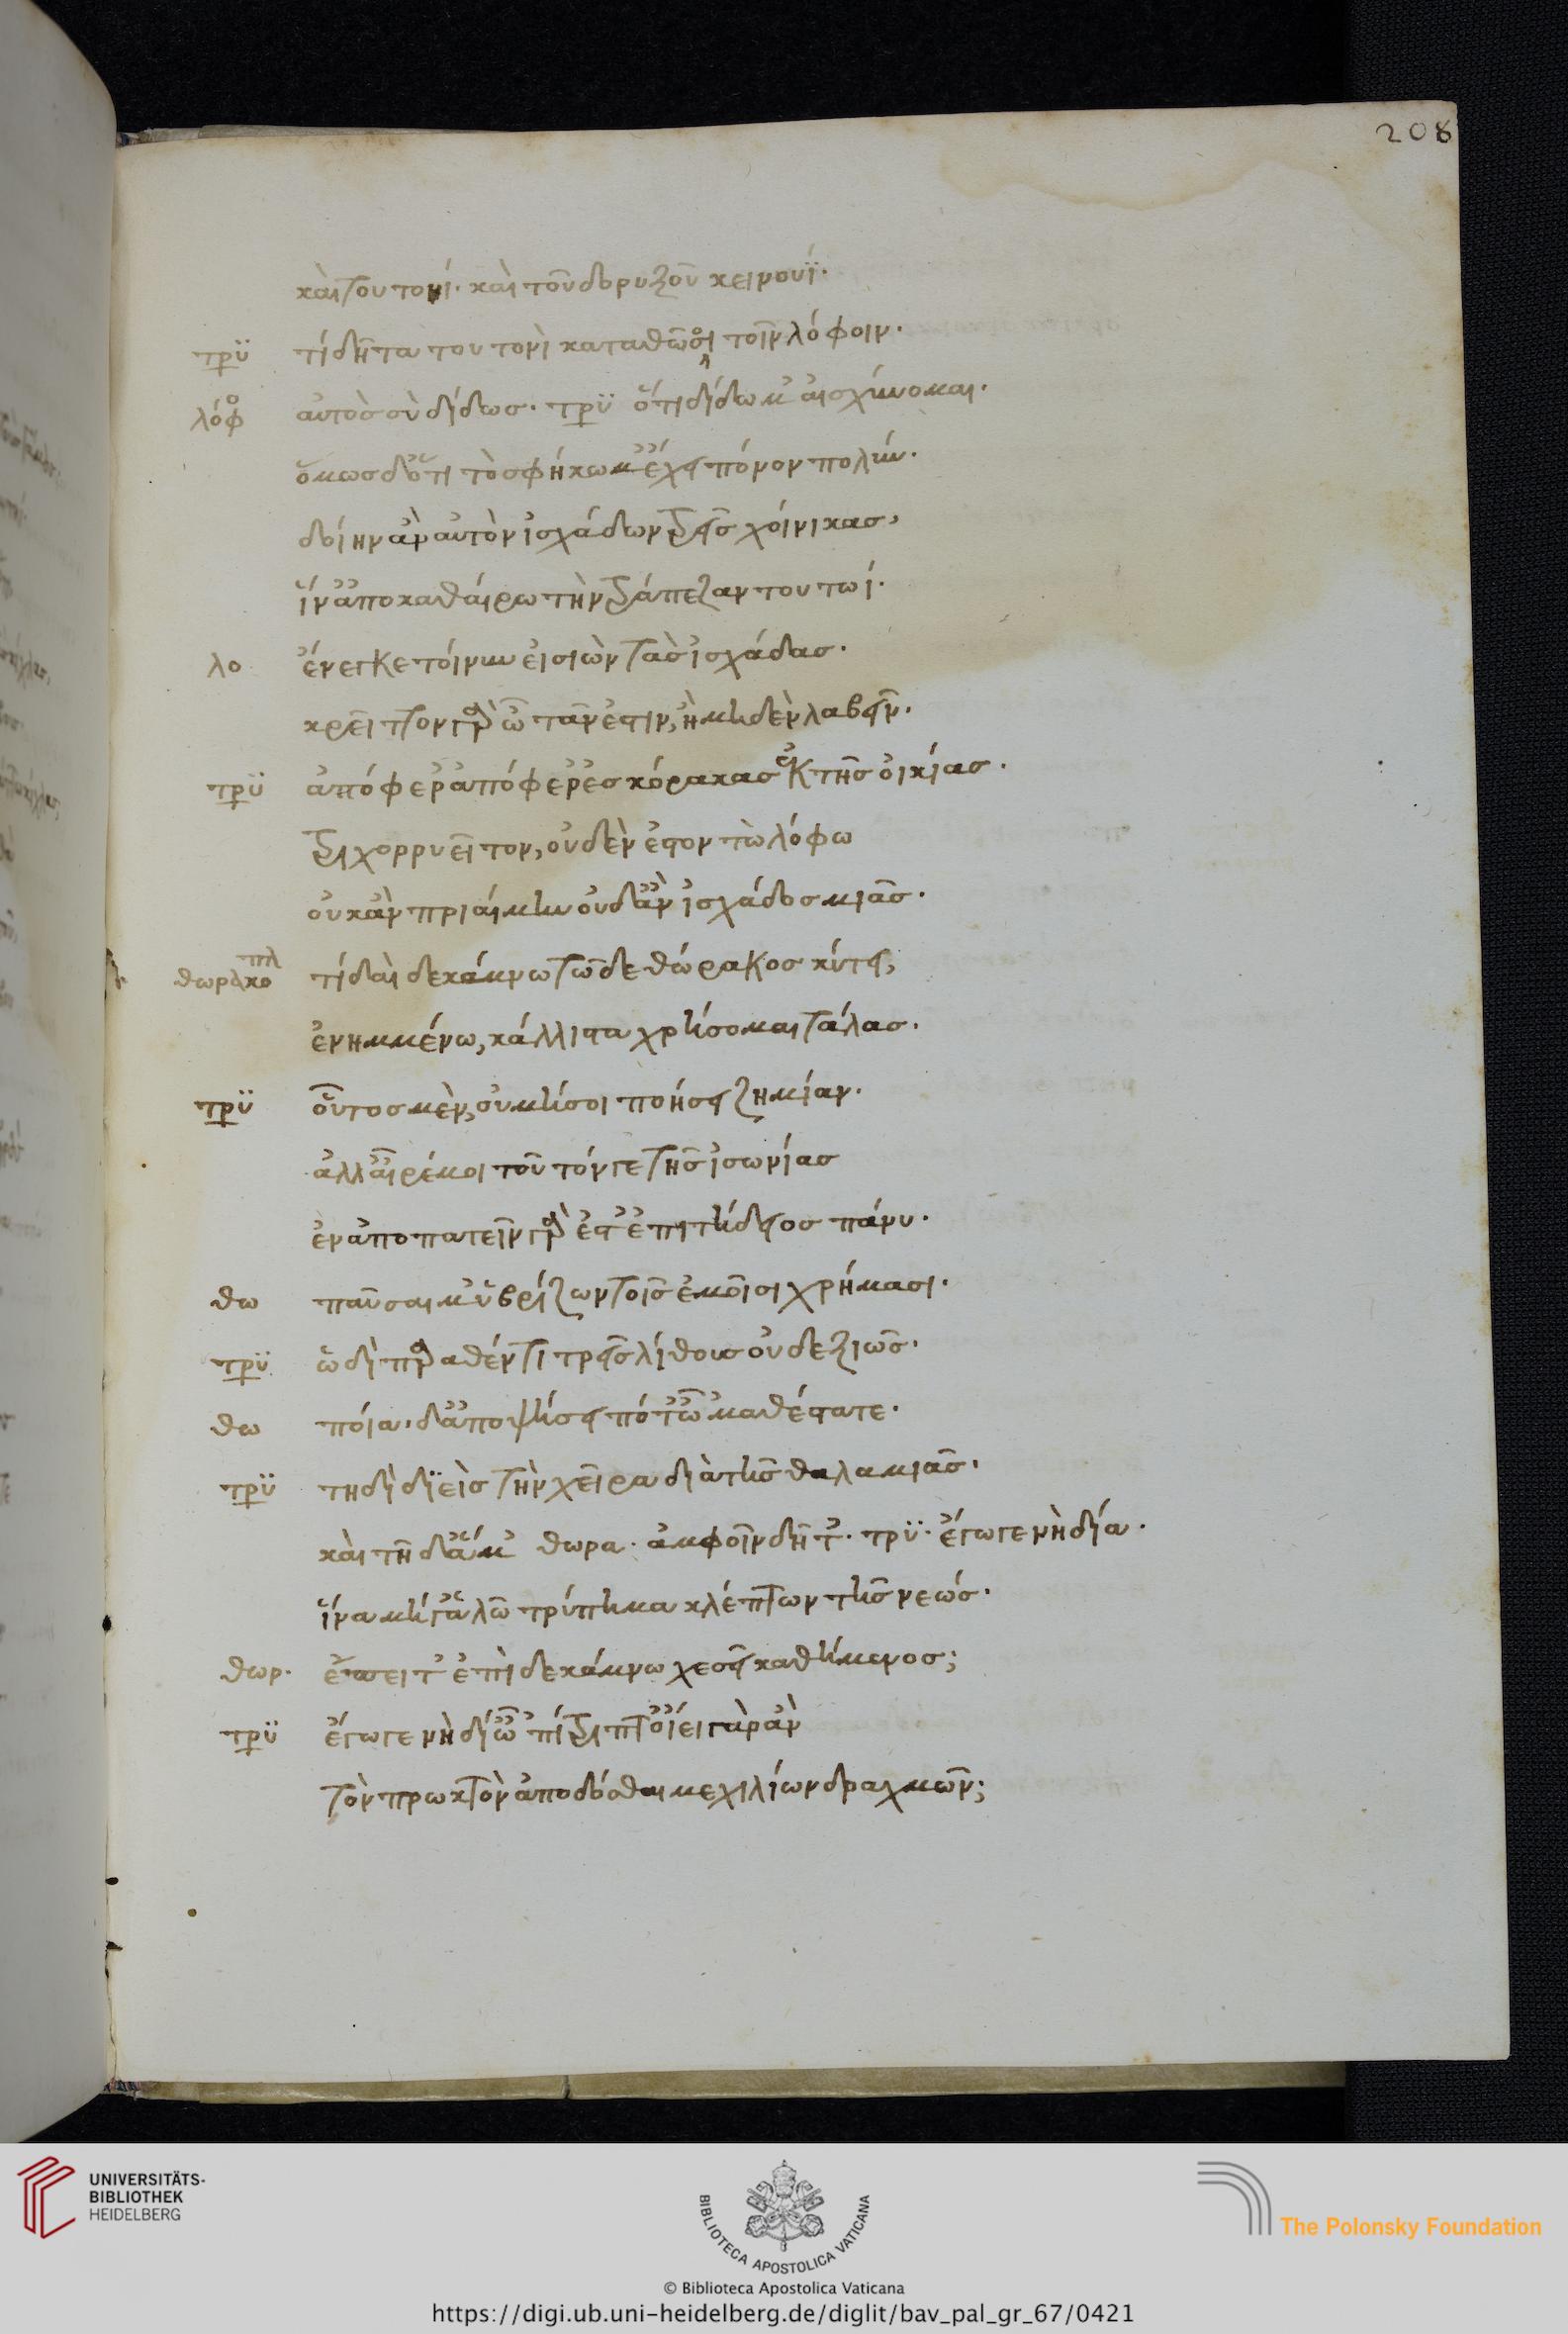 208
καὶ τουτονί· καὶ τοῦ δορυξοῦ κεινουΐ·
τρυ τί δῆτα τουτονὶ καταθῶ σοι τοῖν λόφοιν·
λόφο αὐτὸς σὺ δίδως· τρυ ὅτι δίδωμ' αἰσχύνομαι·
ὅμως δ' ὅτι τὸ σφήκωμ' ἔχει πόνον πολύν·
δοίην ἂν αὐτὸν ἰσχάδων τρεῖς χοίνικας,
ἵν' ἀποκαθαίρω τὴν τράπεζαν τουτωί·
λο ἔνεγκε τοίνυν εἰσιὼν τὰς ἰσχάδας·
κρεῖττον γὰρ ὦ τᾶν ἐστιν, ἢ μηδὲν λαβεῖν·
τρυ ἀπόφερ' ἀπόφερ' ἐς κόρακας ἐκ τῆς οἰκίας·
τριχορρυεῖτον, οὐδὲν ἐστον τὼ λόφω
οὐκ ἂν πριαίμην οὐδ' ἂν ἰσχάδος μιᾶς·
θωρακοπλ τί δαὶ δεκάμνω τῶδε θώρακος κύτει,
ἐνημμένω, κάλλιστα χρήσομαι τάλας·
τρυ οὗτος μὲν, οὐ μή σοι ποήσει ζημίαν·
ἀλλ' αἶρέ μοι τοῦτόν γε τῆς ἰσωνίας
ἐναποπατεῖν γὰρ ἐστ' ἐπιτήδειος πάνυ·
θω παῦσαι μ' ὑβρίζων τοῖς ἐμοῖσι χρήμασι·
τρυ ὡδὶ παραθέντι τρεῖς λίθους οὐ δεξιῶς·
θω ποία· δ' ἀποψήσει πότ' ὦ 'μαθέστατε·
τρυ τηδὶ διεὶς τὴν χεῖρα διὰ τῆς θαλαμιᾶς·
καὶ τῆδ' ἅμ' θωρα· ἀμφοῖν δῆτ'· τρυ· ἔγωγε νὴ δία·
ἵνα μή γ' ἁλῶ τρύπημα κλέπτων τῆς νεώς·
θωρ· ἔπειτ' ἐπὶ δεκάμνω χεσεῖ καθήμενος;
τρυ ἔγωγε νὴ δί' ὦ 'πίτριπτ' οἴει γὰρ ἂν
τὸν πρωκτὸν ἀποδόσθαι με χιλίων δραχμῶν;
UNIVERSITÄTS-
BIBLIOTHEK
HEIDELBERG
BIBLIOTECA APOSTOLICA VATICANA
The Polonsky Foundation
© Biblioteca Apostolica Vaticana
https://digi.ub.uni-heidelberg.de/diglit/bav_pal_gr_67/0421